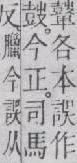 鼙各本誤作
鼓。今正。司馬
反臘今誤从